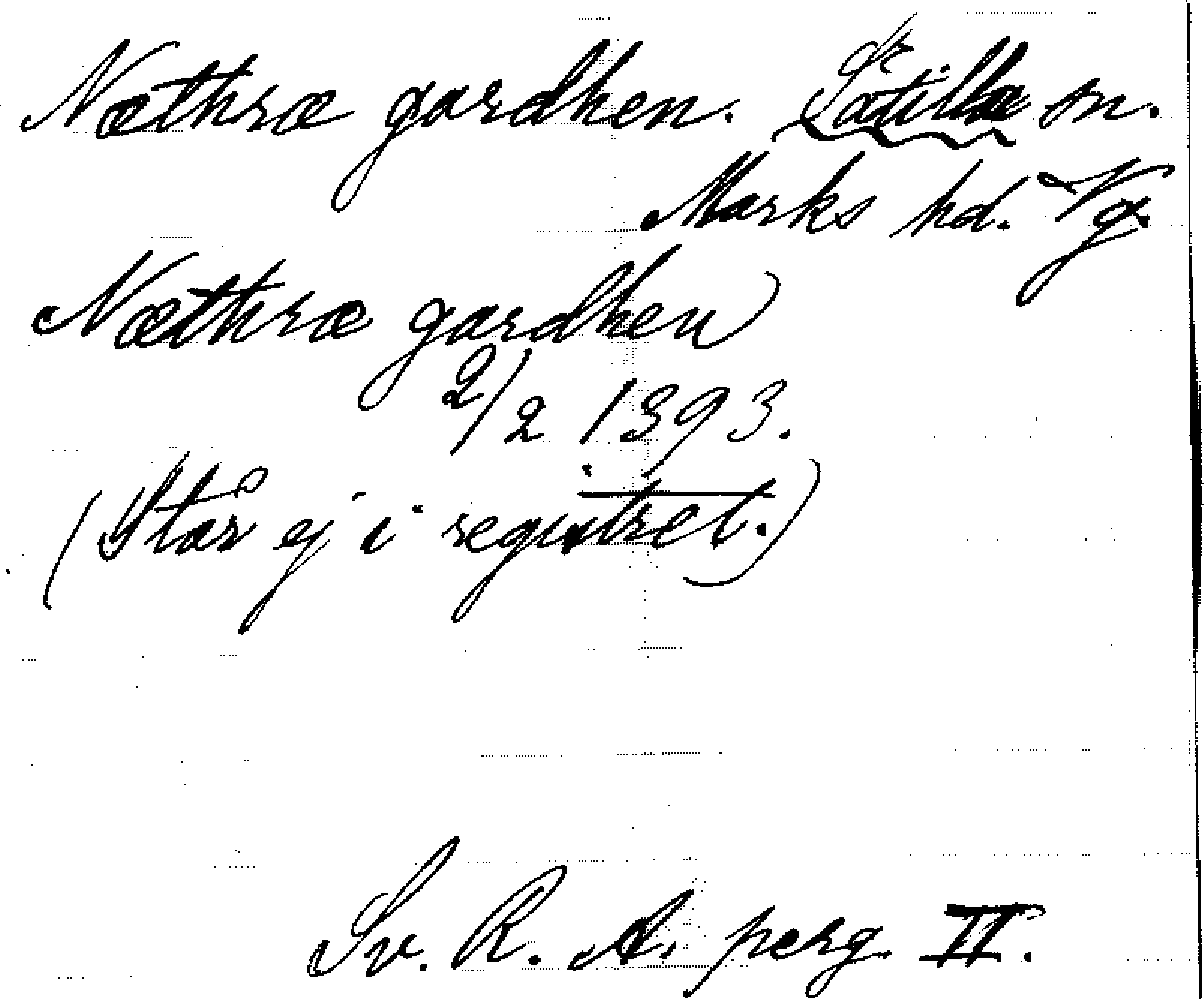 Næthræ gardhen. Sätilla sn.
Marks hd. Vg.
Næthræ gardhen
2/2 1393.
(Står ej i registret.)
Sv. R. A. perg. II.